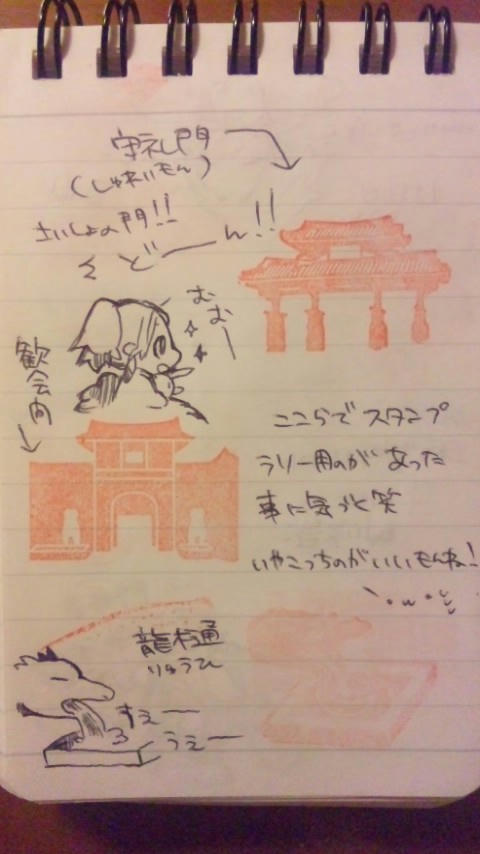 守礼門
(しゅれいもん)
さいしょの門!!
どーーん!!
むむー
歓会門
ここらでスタンプ
ラリー用のがあった
事に気づく笑
いやこっちのがいいもんね!
龍樋
りゅうひ
すえー
うえー